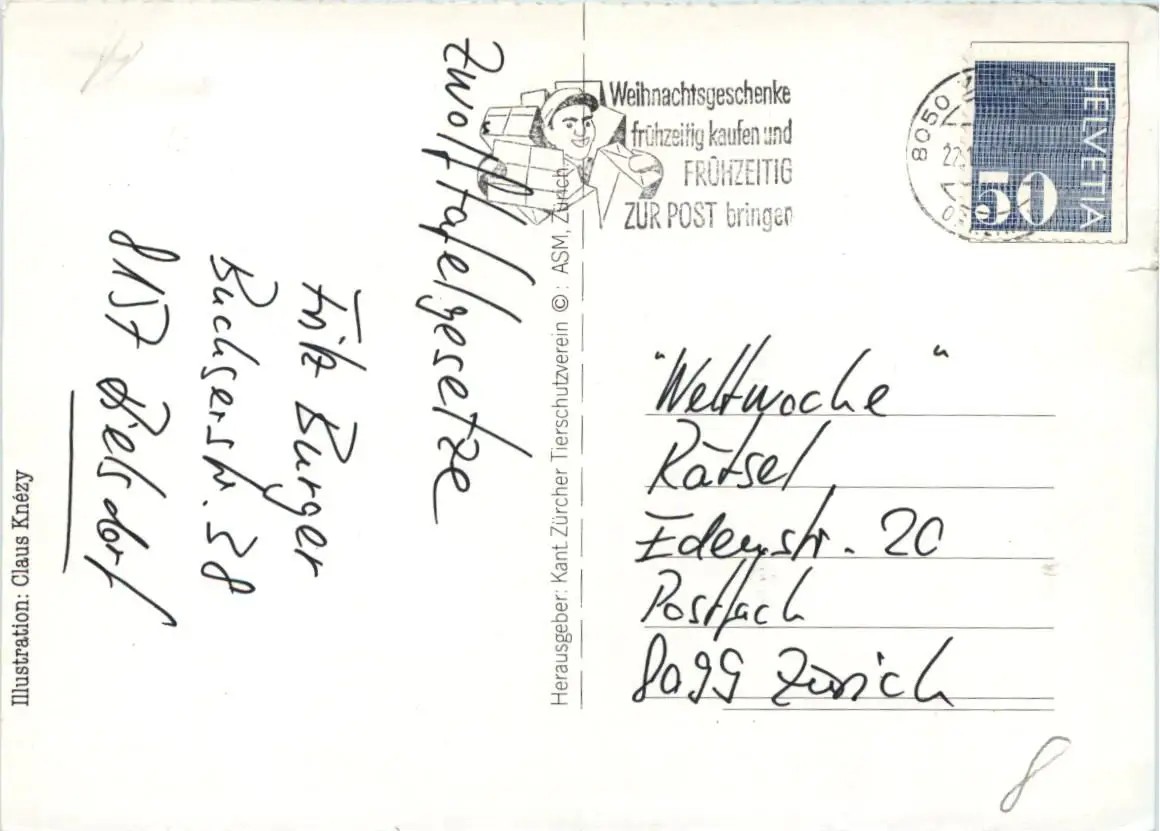 Zwölftafelgesetze
Fritz Burger
Buchserstr. 38
8157 Dielsdorf
Illustration: Claus Knézy
Herausgeber: Kant. Zürcher Tierschutzverein ©: ASM, Zürich
Weihnachtsgeschenke
frühzeitig kaufen und
FRÜHZEITIG
ZUR POST bringen
8050
22.
HELVETIA
50
"Weltwoche"
Rätsel
Edenstr. 20
Postfach
8099 Zürich
8